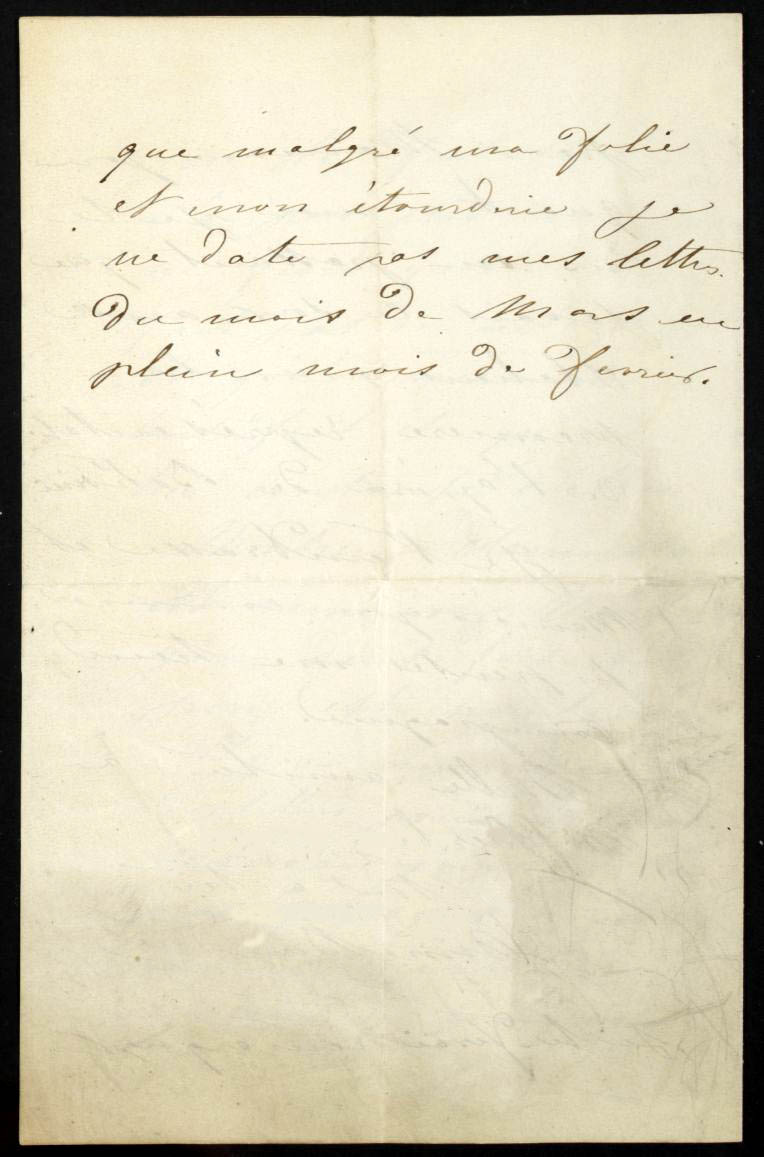 que malgré ma folie
et mon étourderie je
ne date pas mes lettres
du mois de Mars en
plein mois de fevrier.